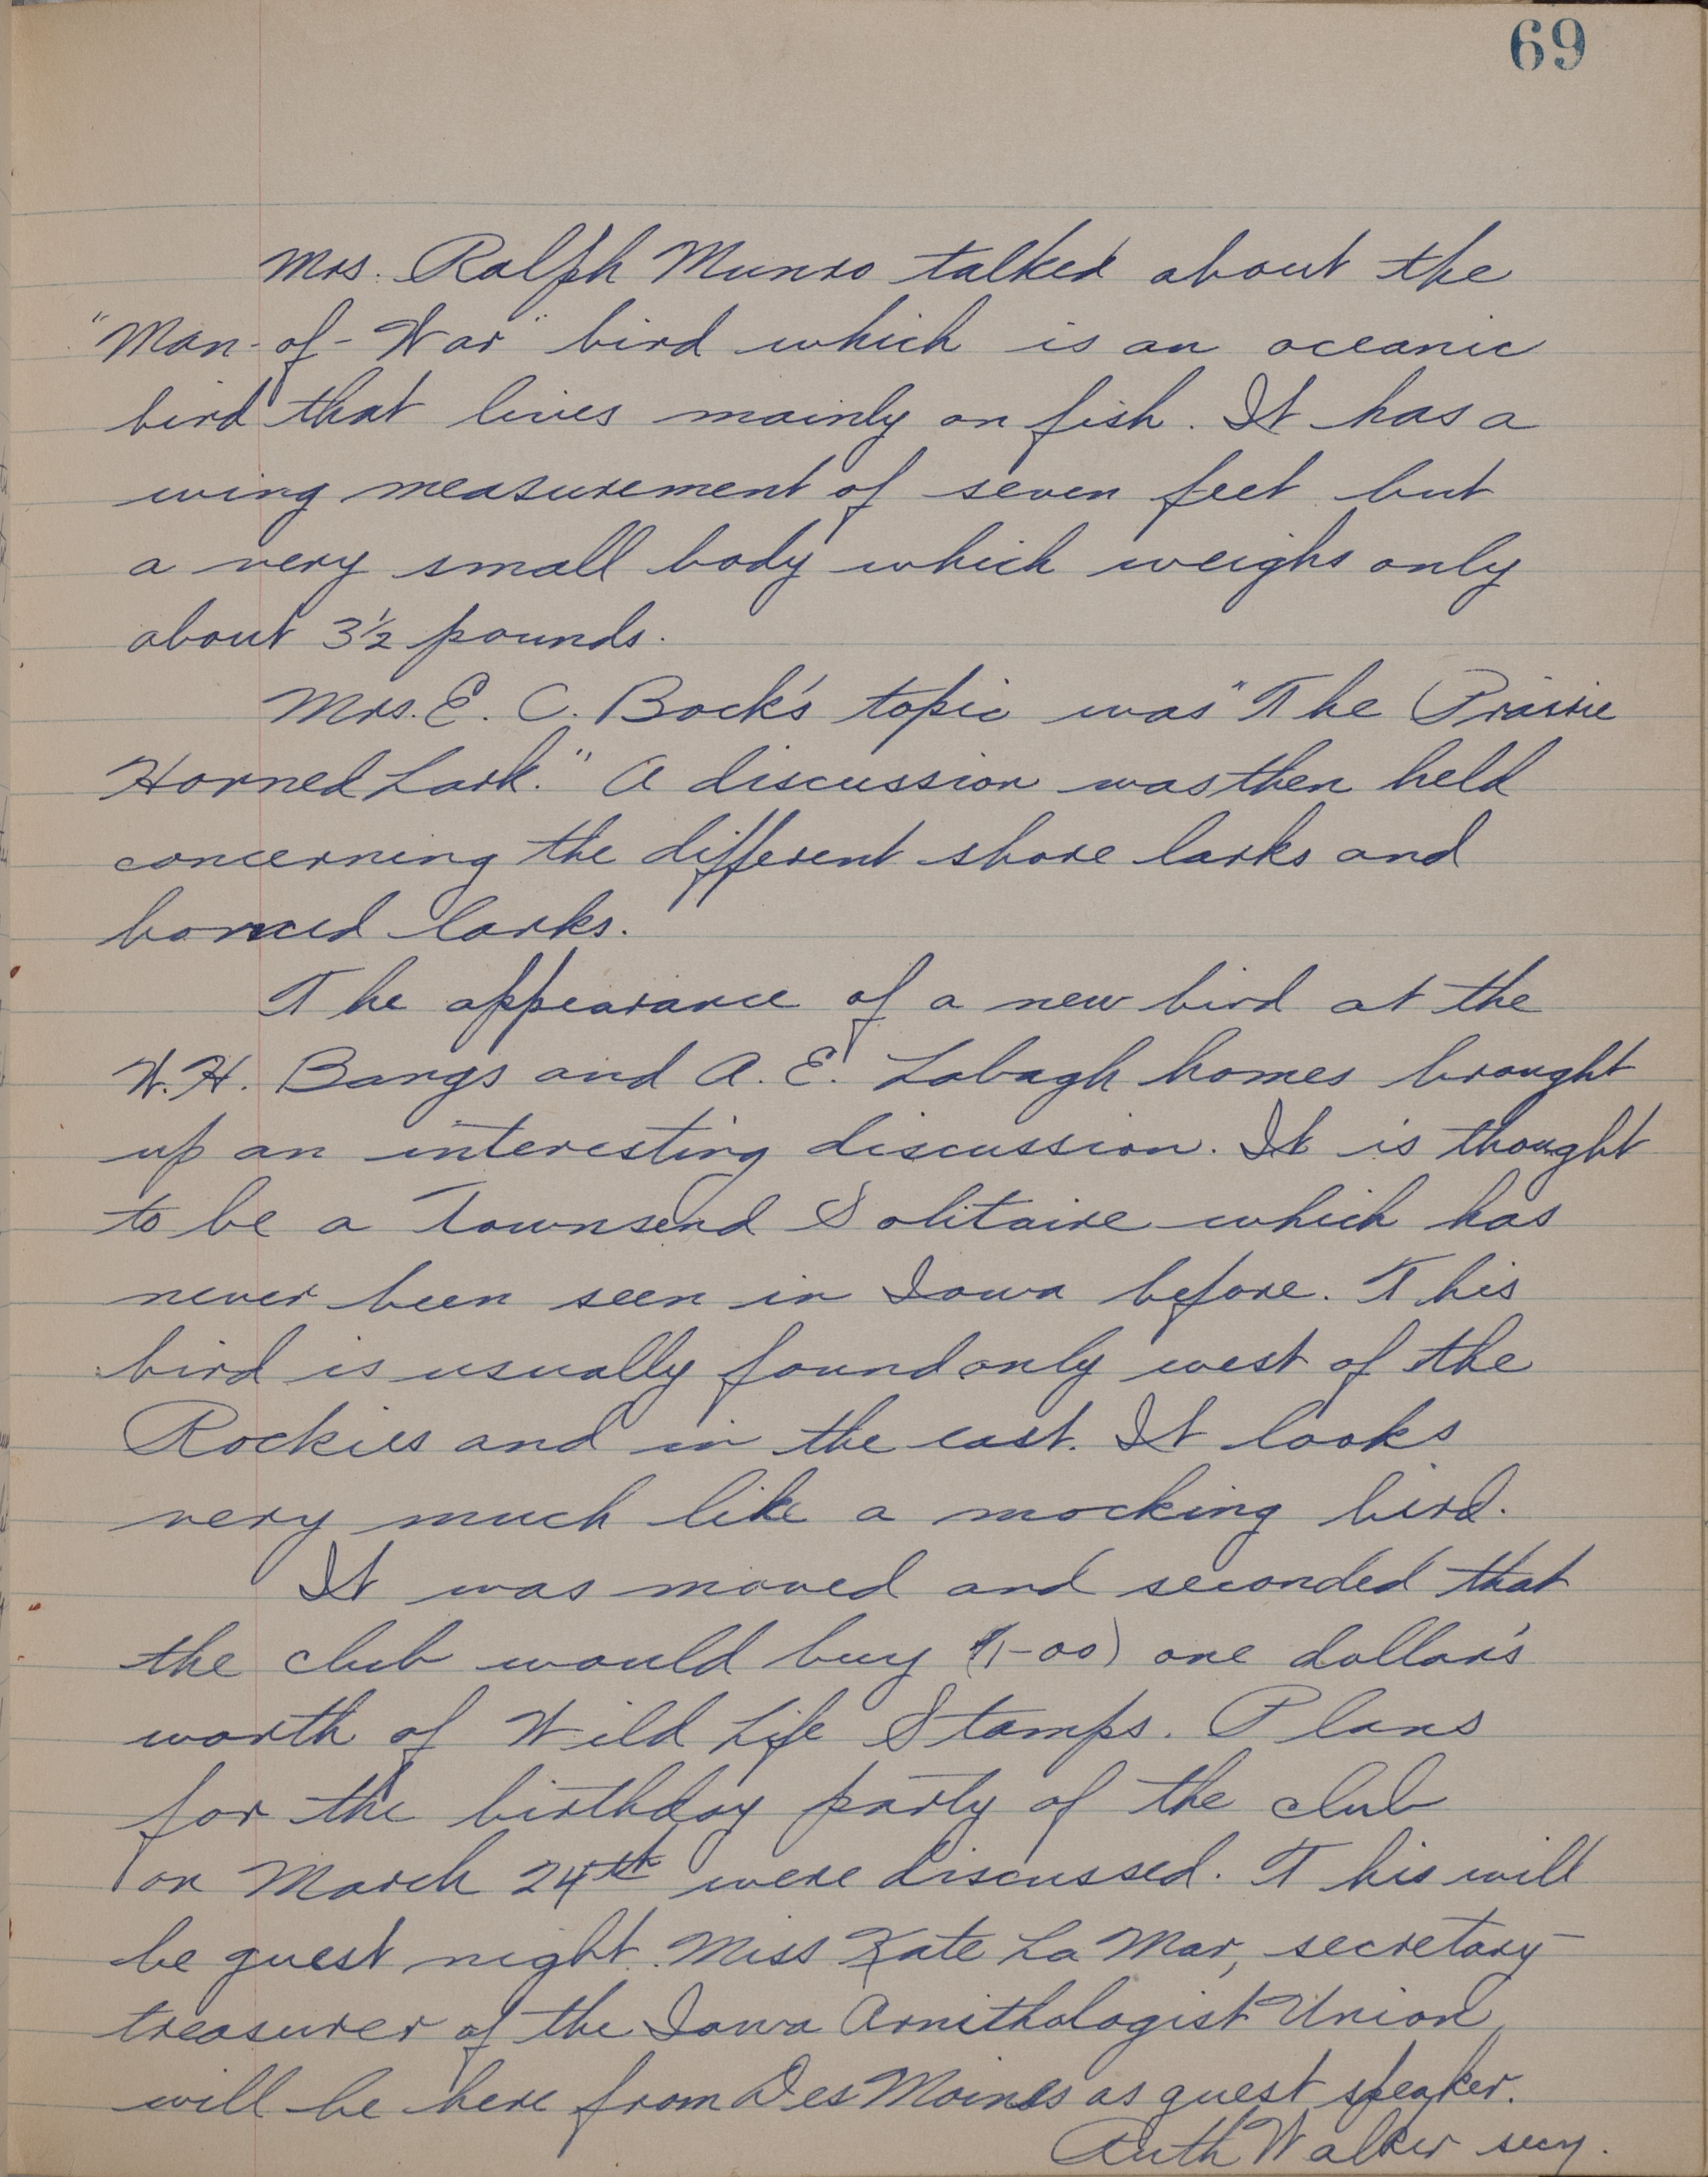 69
Mrs. Ralph Munro talked about the
"Man-of-War" bird which is an oceanic
bird that lives mainly on fish. It has a
wing measurement of seven feet but
a very small body which weighs only
about 3½ pounds.
Mrs. E. C. Bock's topic was "The Prairie
Horned Lark." A discussion was then held
concerning the different shore larks and
horned larks.
The appearance of a new bird at the
W. H. Bangs and A. E. Labagh homes brought
up an interesting discussion. It is thought
to be a Townsend Solitaire which has
never been seen in Iowa before. This
bird is usually found only west of the
Rockies and in the east. It looks
very much like a mocking bird.
It was moved and seconded that
the club would buy ($1-00) one dollar's
worth of Wild Life Stamps. Plans
for the birthday party of the club
on March 24th were discussed. This will
be guest night. Miss Kate La Mar, secretary
treasurer of the Iowa Ornithologist Union,
will be here from Des Moines as guest speaker.
Ruth Walker secy.